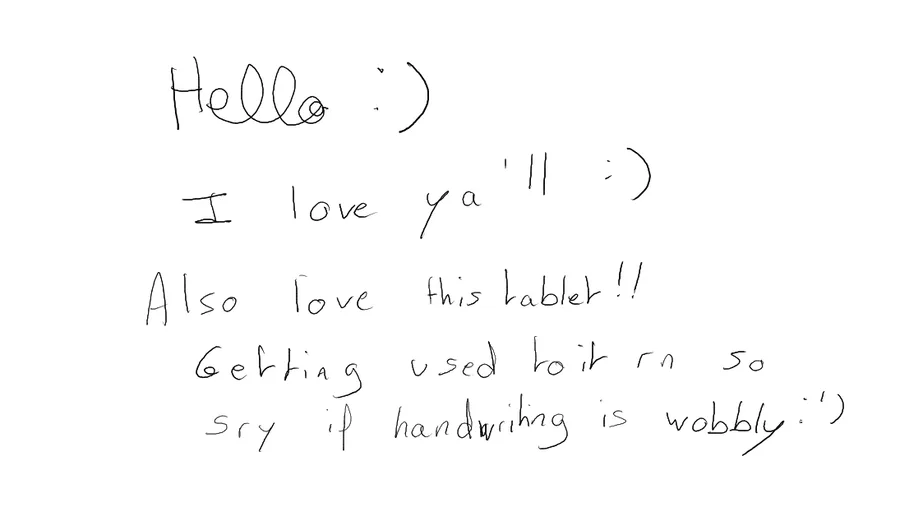 Hello :)
I love ya'll :)
Also love this tablet!!
Getting used to it rn so
sry if handwriting is wobbly :')